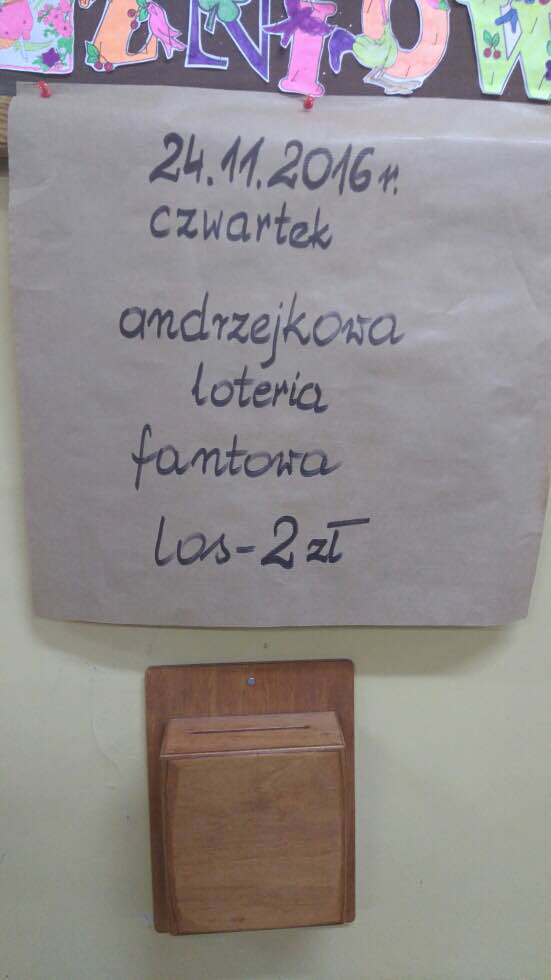 24.11.2016 r.
czwartek
andrzejkowa
loteria
fantowa
los-2 zł